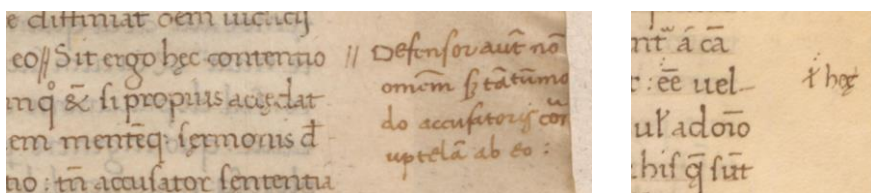 e diffiniat oēm iudicij
eo // Sit ergo hęc contentio
inqͦ & si propius accędat
em mentēq; sęrmonis đ
tio : tn̄ accusator sententia
// Defensor aut̄ nō
omēm sꝫ tātūmo
do accusatoris cōr
uptelā ab eo :
á cā
: ēē uel
ul̵ ad oīo
his q̄ sūt
ł hęc